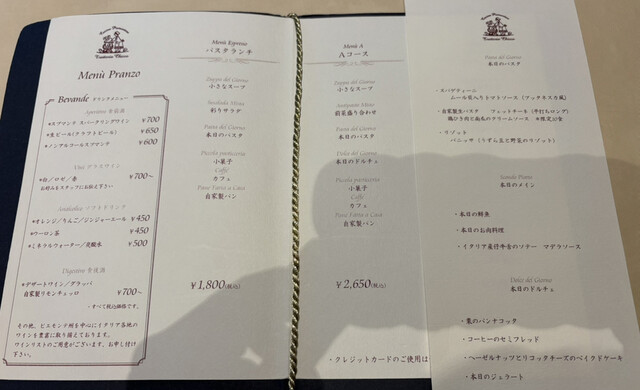 Menù Pranzo
Bevande ドリンクメニュー
Aperitivo 食前酒
*スプマンテ スパークリングワイン ￥700
*生ビール(クラフトビール) ￥650
*ノンアルコールスプマンテ ￥600
Vino グラスワイン
*白/ロゼ/赤 ￥700~
お好みをスタッフにお伝え下さい
Analcolico ソフトドリンク
*オレンジ/りんご/ジンジャーエール ￥450
*ウーロン茶 ￥450
*ミネラルウォーター/炭酸水 ￥500
Digestivo 食後酒
*デザートワイン/グラッパ
自家製リモンチェッロ ￥700~
・すべて税込価格です。
その他、ピエモンテ州を中心にイタリア各地の
ワインを豊富に取り揃えております。
ワインリストのご用意がございます、お申し付け
下さい。
Menù Espresso
パスタランチ
Zuppa del Giorno
小さなスープ
Insalata Mista
彩りサラダ
Pasta del Giorno
本日のパスタ
Piccola pasticceria
小菓子
Caffè
カフェ
Pane Fatto a Casa
自家製パン
￥1,800(税込)
Menù A
Aコース
Zuppa del Giorno
小さなスープ
Antipasto Misto
前菜盛り合わせ
Pasta del Giorno
本日のパスタ
Dolce del Giorno
本日のドルチェ
Piccola pasticceria
小菓子
Caffè
カフェ
Pane Fatto a Casa
自家製パン
￥2,650(税込)
・クレジットカードのご使用は
Pasta del Giorno
本日のパスタ
・スパゲティーニ
ムール貝入りトマトソース(アッチャ風)
・自家製生パスタ フェットチーネ (平打ちロング)
・リゾット
パニッサ (うずら豆と野菜のリゾット)
Secondo Piatto
本日のメイン
・本日の鮮魚
・本日のお肉料理
・イタリア産仔牛舌のソテー マデラソース
Dolce del Giorno
本日のドルチェ
・栗のパンナコッタ
・コーヒーのセミフレッド
・ヘーゼルナッツとリコッタチーズのベイクドケーキ
・本日のジェラート